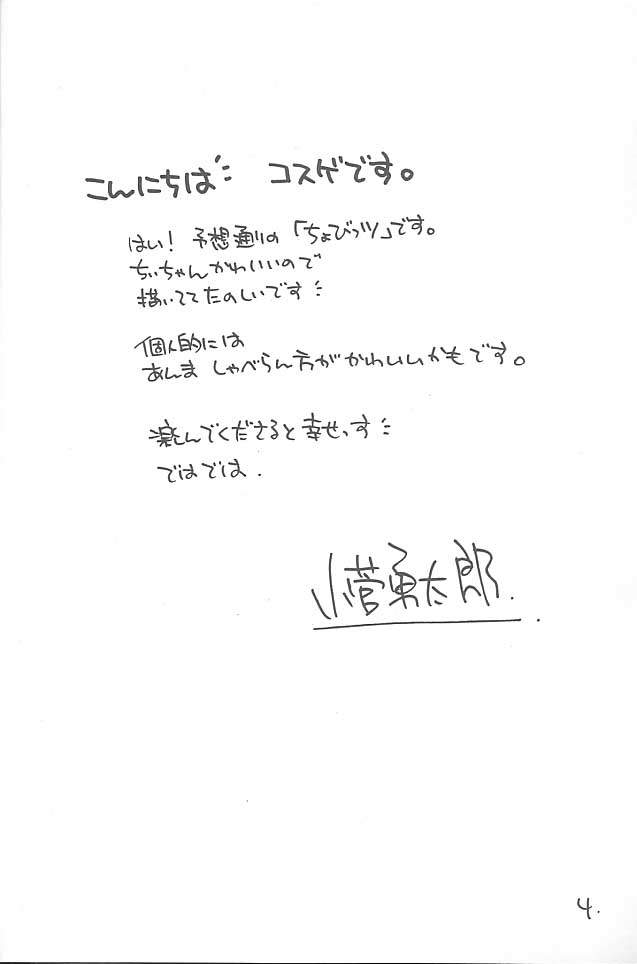 こんにちは コスゲです。
はい！ 予想通りの「ちょびっツ」です。
ちぃちゃんかわいいので
描いててたのしいです
個人的には
あんま しゃべらん方がかわいいかもです。
楽しんでくださると幸せっす
ではでは.
小菅勇太郎.
4.